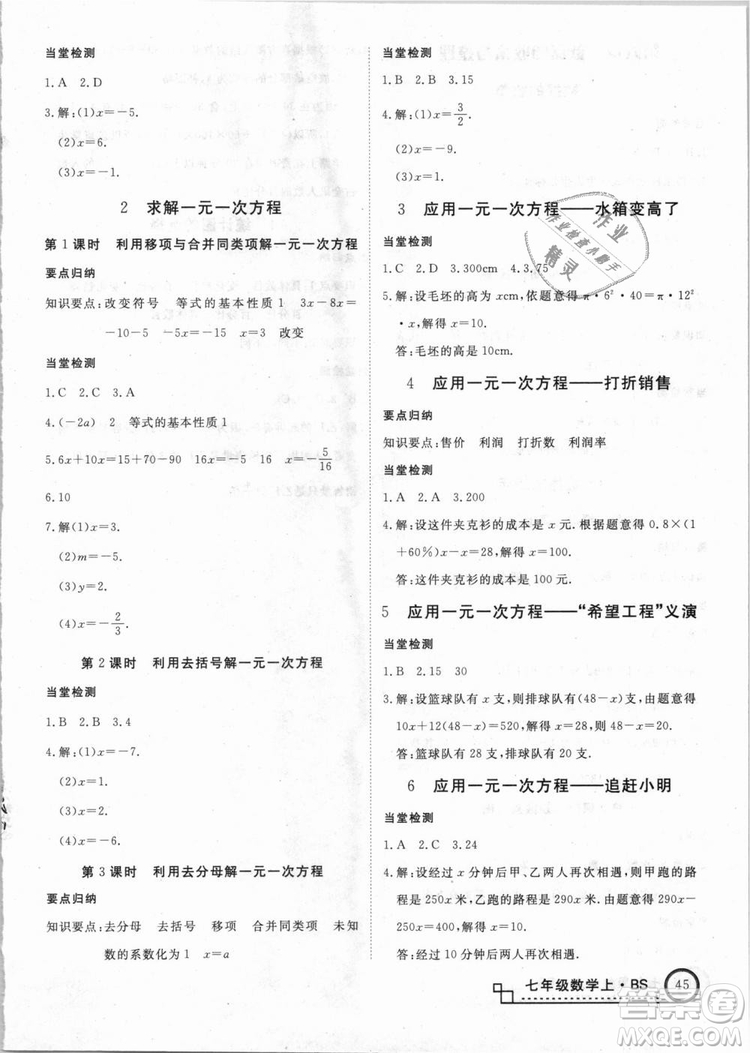 当堂检测
1.A  2.D
3.解:(1)x=-5.
(2)x=6.
(3)x=-1.
2  求解一元一次方程
第1课时  利用移项与合并同类项解一元一次方程
要点归纳
知识要点:改变符号  等式的基本性质1  3x-8x=
-10-5  -5x=-15  x=3  改变
当堂检测
1.C  2.C  3.A
4.(-2a)  2  等式的基本性质1
5.6x+10x=15+70-90  16x=-5  16  x=-5/16
6.10
7.解(1)x=3.
(2)m=-5.
(3)y=2.
(4)x=-2/3.
第2课时  利用去括号解一元一次方程
当堂检测
1.B  2.B  3.4
4.解:(1)x=-7.
(2)x=0.
(3)x=4.
(4)x=-6.
第3课时  利用去分母解一元一次方程
要点归纳
知识要点:去分母  去括号  移项  合并同类项  未知
数的系数化为1  x=a
当堂检测
1.B  2.B  3.15
4.解:(1)x=3/2.
(2)x=-9.
(3)x=1.
3  应用一元一次方程——水箱变高了
当堂检测
1.C  2.D  3.300cm  4.3.75
5.解:设毛坯的高为xcm,依题意得π·6²·40=π·12²
·x,解得x=10.
答:毛坯的高是10cm.
4  应用一元一次方程——打折销售
要点归纳
知识要点:售价  利润  打折数  利润率
当堂检测
1.A  2.A  3.200
4.解:设这件夹克衫的成本是x元.根据题意得0.8×(1
+60%)x-x=28,解得x=100.
答:这件夹克衫的成本是100元.
5  应用一元一次方程——“希望工程”义演
当堂检测
1.B  2.15  30
3.解:设篮球队有x支,则排球队有(48-x)支,由题意得
10x+12(48-x)=520,解得x=28.48-x=20.
答:篮球队有28支,排球队有20支.
6  应用一元一次方程——追赶小明
当堂检测
1.A  2.C  3.24
4.解:设经过x分钟后甲、乙两人再次相遇,则甲跑的路
程为250x米,乙跑的路程为290x米,由题意得290x
-250x=400,解得x=10.
答:经过10分钟后两人再次相遇.
七年级数学上·BS  45
作业
作业检查小助手
精灵
答案圈
MXQE.COM